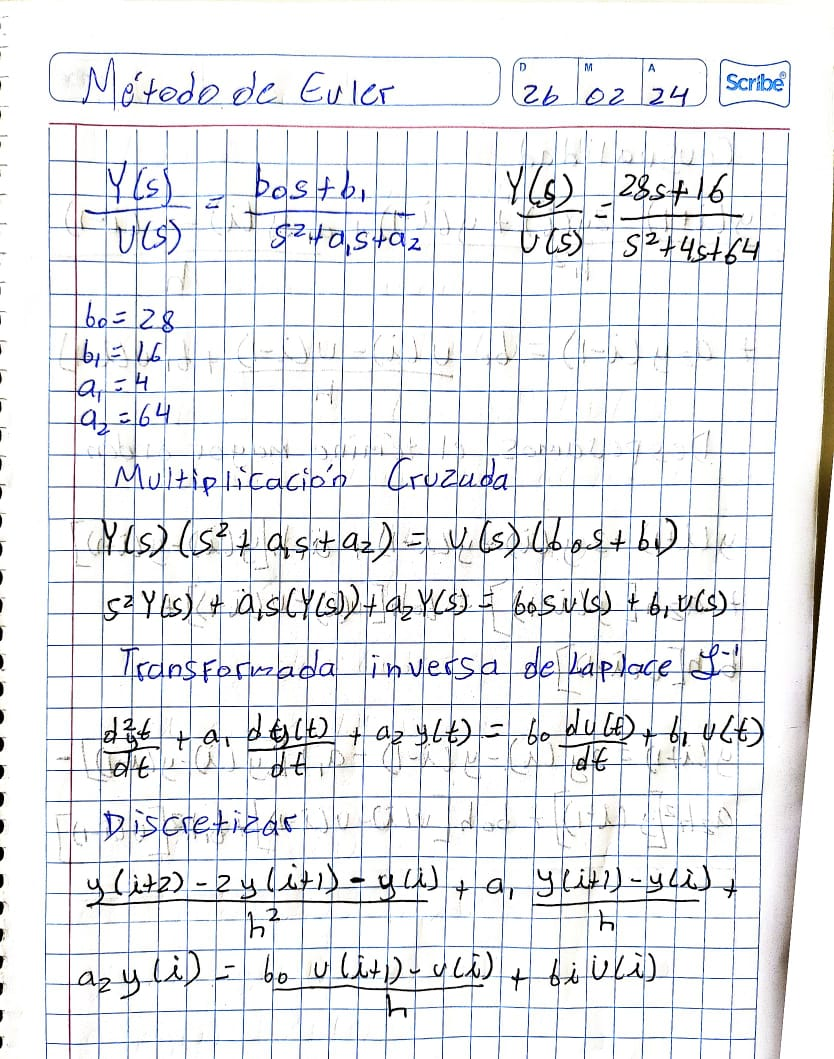 Método de Euler
D 26 M 02 A 24
Scribe
Y(s)/U(s) = b0s+b1/s²+a1s+a2    Y(s)/U(s) = 28s+16/s²+4s+64
b0 = 28
b1 = 16
a1 = 4
a2 = 64
Multiplicación Cruzada
Y(s)(s²+a1s+a2) = U(s)(b0s+b1)
s²Y(s) + a1s(Y(s)) + a2Y(s) = b0sU(s) + b1U(s)
Transformada inversa de Laplace ℒ⁻¹
+ a1 dy(t)/dt + a2 y(t) = b0 du(t)/dt + b1 u(t)
Discretizar
y(i+2)-2y(i+1)-y(i)/h² + a1 y(i+1)-y(i)/h +
a2 y(i) = b0 u(i+1)-u(i)/h + bi u(i)